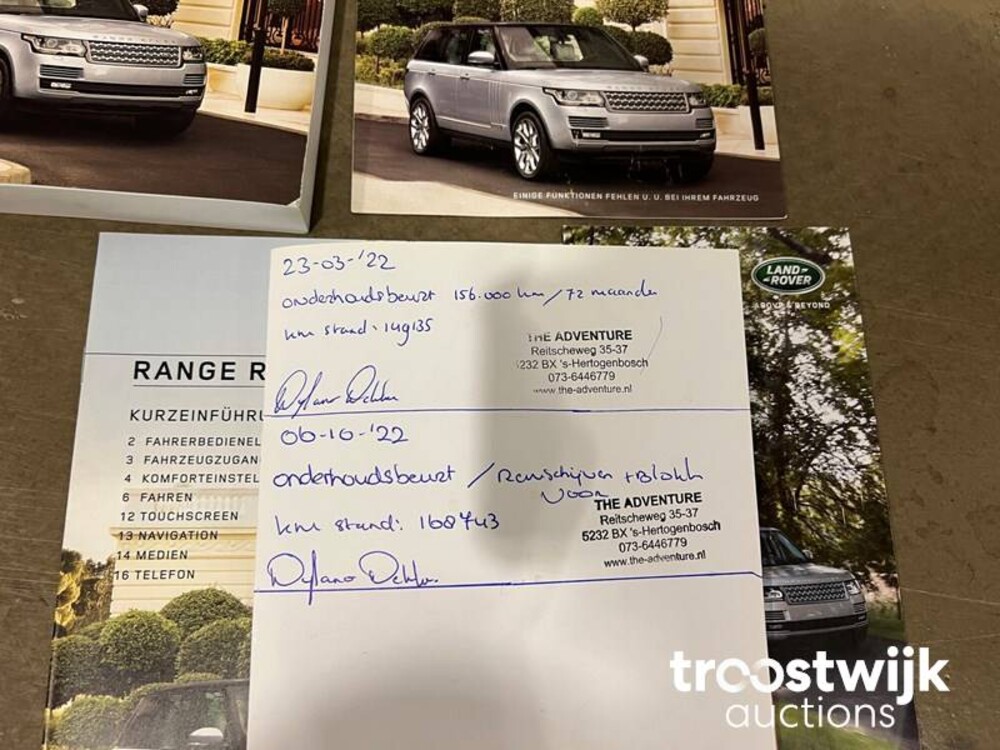 RANGE ROVER
EINIGE FUNKTIONEN FEHLEN U. U. BEI IHREM FAHRZEUG
LAND-
ROVER
ABOVE & BEYOND
23-03-'22
onderhoudsbeurt 156.000 km / 72 maanden
km stand: 149135
THE ADVENTURE
Reitscheweg 35-37
5232 BX 's-Hertogenbosch
073-6446779
www.the-adventure.nl
06-10-'22
onderhoudsbeurt / Remschijven + Blokk
voor
km stand: 168743
THE ADVENTURE
Reitscheweg 35-37
5232 BX 's-Hertogenbosch
073-6446779
www.the-adventure.nl
RANGE R
KURZEINFÜHRU
2 FAHRERBEDIENEL
3 FAHRZEUGZUGAN
4 KOMFORTEINSTEL
6 FAHREN
12 TOUCHSCREEN
13 NAVIGATION
14 MEDIEN
16 TELEFON
troostwijk
auctions